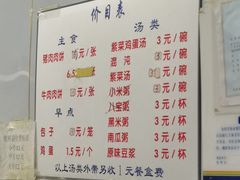 价目表
主食
猪肉肉饼 元/张
6.5 张
牛肉肉饼 元/张
早点
包子 元/笼
鸡蛋 1.5元/个
汤类
紫菜鸡蛋汤 3元/碗
混沌 元/碗
紫菜汤 元/碗
小米粥 元/碗
八宝粥 3元/杯
黑米粥 3元/杯
南瓜粥 3元/杯
原味豆浆 3元/杯
以上汤类外带另收1元餐盒费